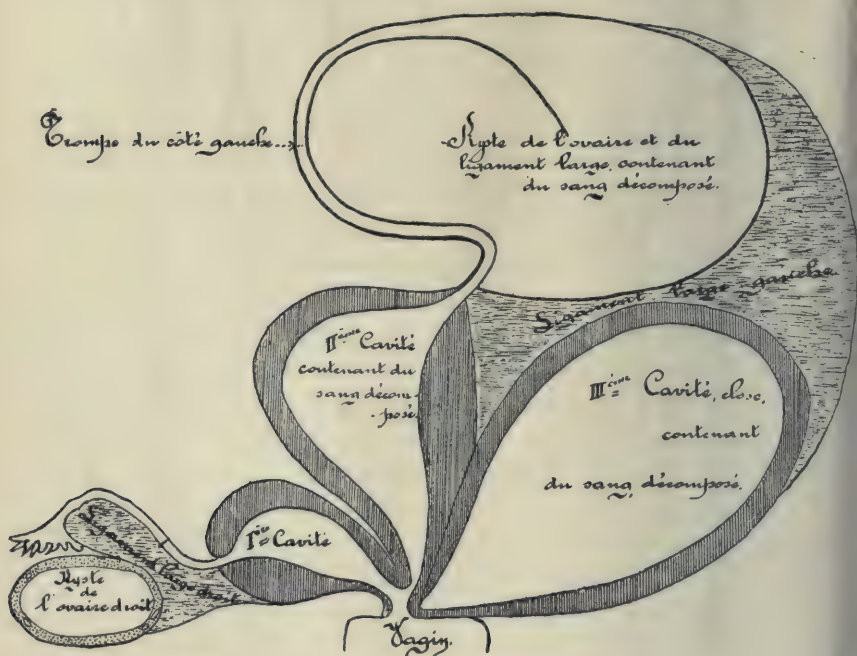 Trompe du côté gauche...
Kyste de l'ovaire et du
ligament large, contenant
du sang décomposé.
Ligament large gauche
IIème Cavité
contenant du
sang décom-
-posé.
IIIème Cavité, close,
contenant
du sang, décomposé.
Ière Cavité
Ligament large droit
Kyste
de
l'ovaire droit
Vagin.